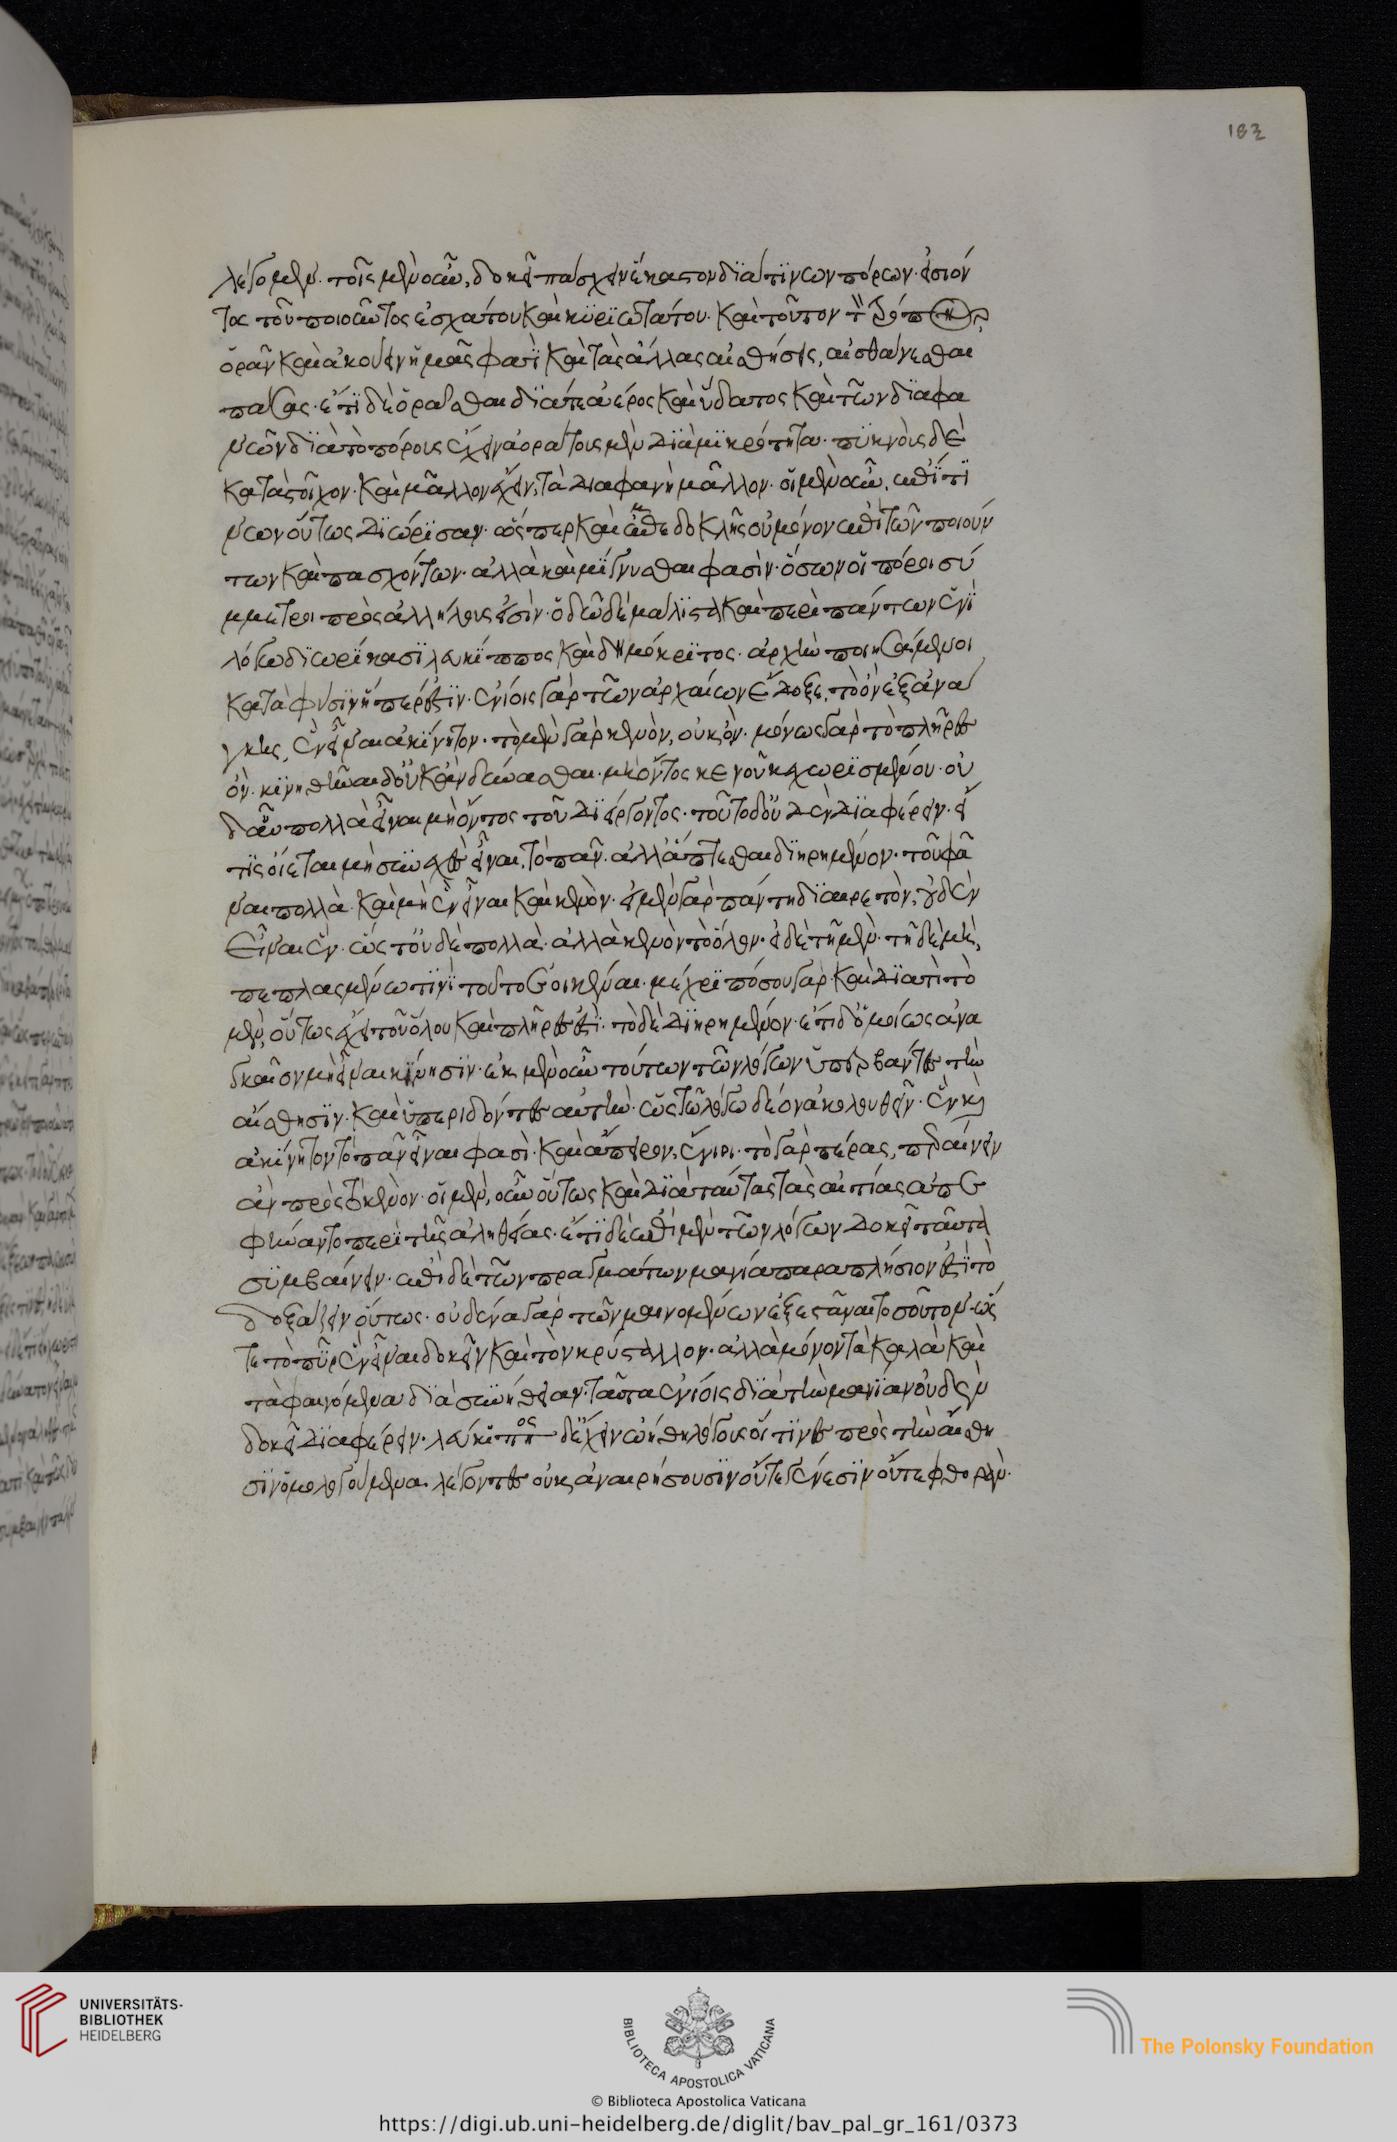 183
λέγομεν. τοῖς μὲν οὖν, δοκεῖ πάσχειν ἕκαστον διά τινων πόρων. εἰσιόν
τος τοῦ ποιοῦντος ἐσχάτου καὶ κυριωτάτου. καὶ τοῦτον τὸν τρόπον
ὁρᾶν καὶ ἀκούειν ἡμᾶς φασὶ καὶ τὰς ἄλλας αἰσθήσεις, αἰσθάνεσθαι
πάσας. ἔτι δὲ ὁρᾶσθαι διά τε ἀέρος καὶ ὕδατος καὶ τῶν διαφα
νῶν διὰ τὸ πόρους ἔχειν ἀοράτους μὲν διὰ μικρότητα. πυκνοὺς δὲ
κατὰ στοῖχον. καὶ μᾶλλον ἔχειν, τὰ διαφανῆ μᾶλλον. οἱ μὲν οὖν, ἐπί τι
νων οὕτως διώρισαν. ὥσπερ καὶ ἐμπεδοκλῆς οὐ μόνον ἐπὶ τῶν ποιούν
των καὶ πασχόντων. ἀλλὰ καὶ μίγνυσθαι φασὶν. ὅσων οἱ πόροι σύ
μμετροι πρὸς ἀλλήλους εἰσὶν. ὁδῶ δὲ μάλιστα καὶ περὶ πάντων ἑνὶ
λόγω διωρίκασι λεύκιππος καὶ δημόκριτος. ἀρχὴν ποιησάμενοι
κατὰ φύσιν ἥπερ ἐστιν. ἐνίοις γὰρ τῶν ἀρχαίων ἔδοξε, τὸ ὂν ἐξ ἀνά
γκης, ἓν εἶναι ἀκίνητον. τὸ μὲν γὰρ κενὸν, οὐκ ὂν. μόνως γὰρ τὸ πλῆρες
ὂν. κινηθῆναι δ' οὐκ ἂν δύνασθαι. μὴ ὄντος κενοῦ κεχωρισμένου. οὐ
δ' αὖ πολλὰ εἶναι μὴ ὄντος τοῦ διείργοντος. τοῦτο δ' οὐδὲν διαφέρειν. εἴ
τις οἴεται μὴ συνεχὲς εἶναι, τὸ πᾶν. ἀλλ' ἅπτεσθαι διηρημένον. τοῦ φᾶ
ναι πολλὰ. καὶ μὴ ἓν εἶναι καὶ κενὸν. εἰ μὲν γὰρ πάντη διαιρετὸν, οὐδὲν
εἶναι ἓν. ὥστ' οὐδὲ πολλὰ. ἀλλὰ κενὸν τὸ ὅλον. εἰ δὲ τῆ μὲν. τῆ δὲ μὴ,
πεπλασμένω τινὶ τοῦτο ἐοικέναι. μέχρι πόσου γὰρ καὶ διὰ τί τὸ
μὲν, οὕτως ἔχει τοῦ ὅλου καὶ πλῆρές ἐστι. τὸ δὲ διηρημένον. ἔτι δ' ὁμοίως ἀνα
γκαῖον μὴ εἶναι κίνησιν. ἐκ μὲν οὖν τούτων τῶν λόγων ὑπερβάντες τὴν
αἴσθησιν. καὶ ὑπεριδόντες αὐτὴν. ὡς τῶ λόγω δέον ἀκολουθεῖν. ἓν καὶ
ἀκίνητον τὸ πᾶν εἶναι φασὶ. καὶ ἄπειρον, ἔνιοι. τὸ γὰρ πέρας, περαίνειν
ἂν πρὸς τὸ κενὸν. οἱ μὲν, οὖν οὕτως καὶ διὰ ταύτας τὰς αἰτίας ἀπε
φήναντο περὶ τῆς ἀληθείας. ἔτι δὲ ἐπὶ μὲν τῶν λόγων δοκεῖ ταῦτα
συμβαίνειν. ἐπὶ δὲ τῶν πραγμάτων μανία παραπλήσιόν ἐστι τὸ
δοξάζειν οὕτως. οὐδένα γὰρ τῶν μαινομένων ἐξεστάναι τοσοῦτον. ὥς
τε τὸ πῦρ ἓν εἶναι δοκεῖν καὶ τὸν κρύσταλλον. ἀλλὰ μόνον τὰ καλὰ καὶ
τὰ φαινόμενα διὰ συνήθειαν. ταῦτα ἐνίοις διὰ τὴν μανίαν οὐδὲν
δοκεῖ διαφέρειν. λεύκιππος δ' ἔχειν ὠήθη λόγους οἵτινες πρὸς τὴν αἴσθη
σιν ὁμολογούμενα λέγοντες οὐκ ἀναιρήσουσιν οὔτε γένεσιν οὔτε φθορὰν.
UNIVERSITÄTS-
BIBLIOTHEK
HEIDELBERG
BIBLIOTECA APOSTOLICA VATICANA
The Polonsky Foundation
© Biblioteca Apostolica Vaticana
https://digi.ub.uni-heidelberg.de/diglit/bav_pal_gr_161/0373